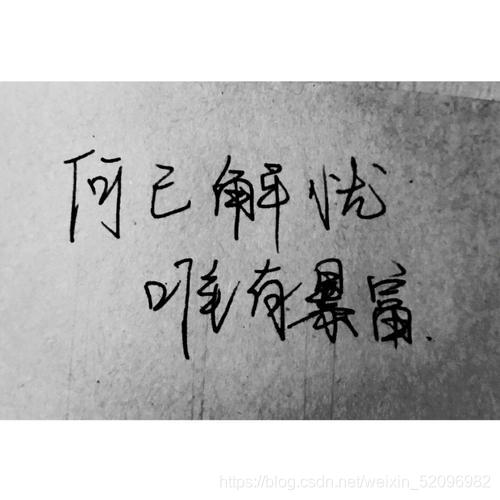 何已解忧
唯有暴富.
https://blog.csdn.net/weixin_52096982